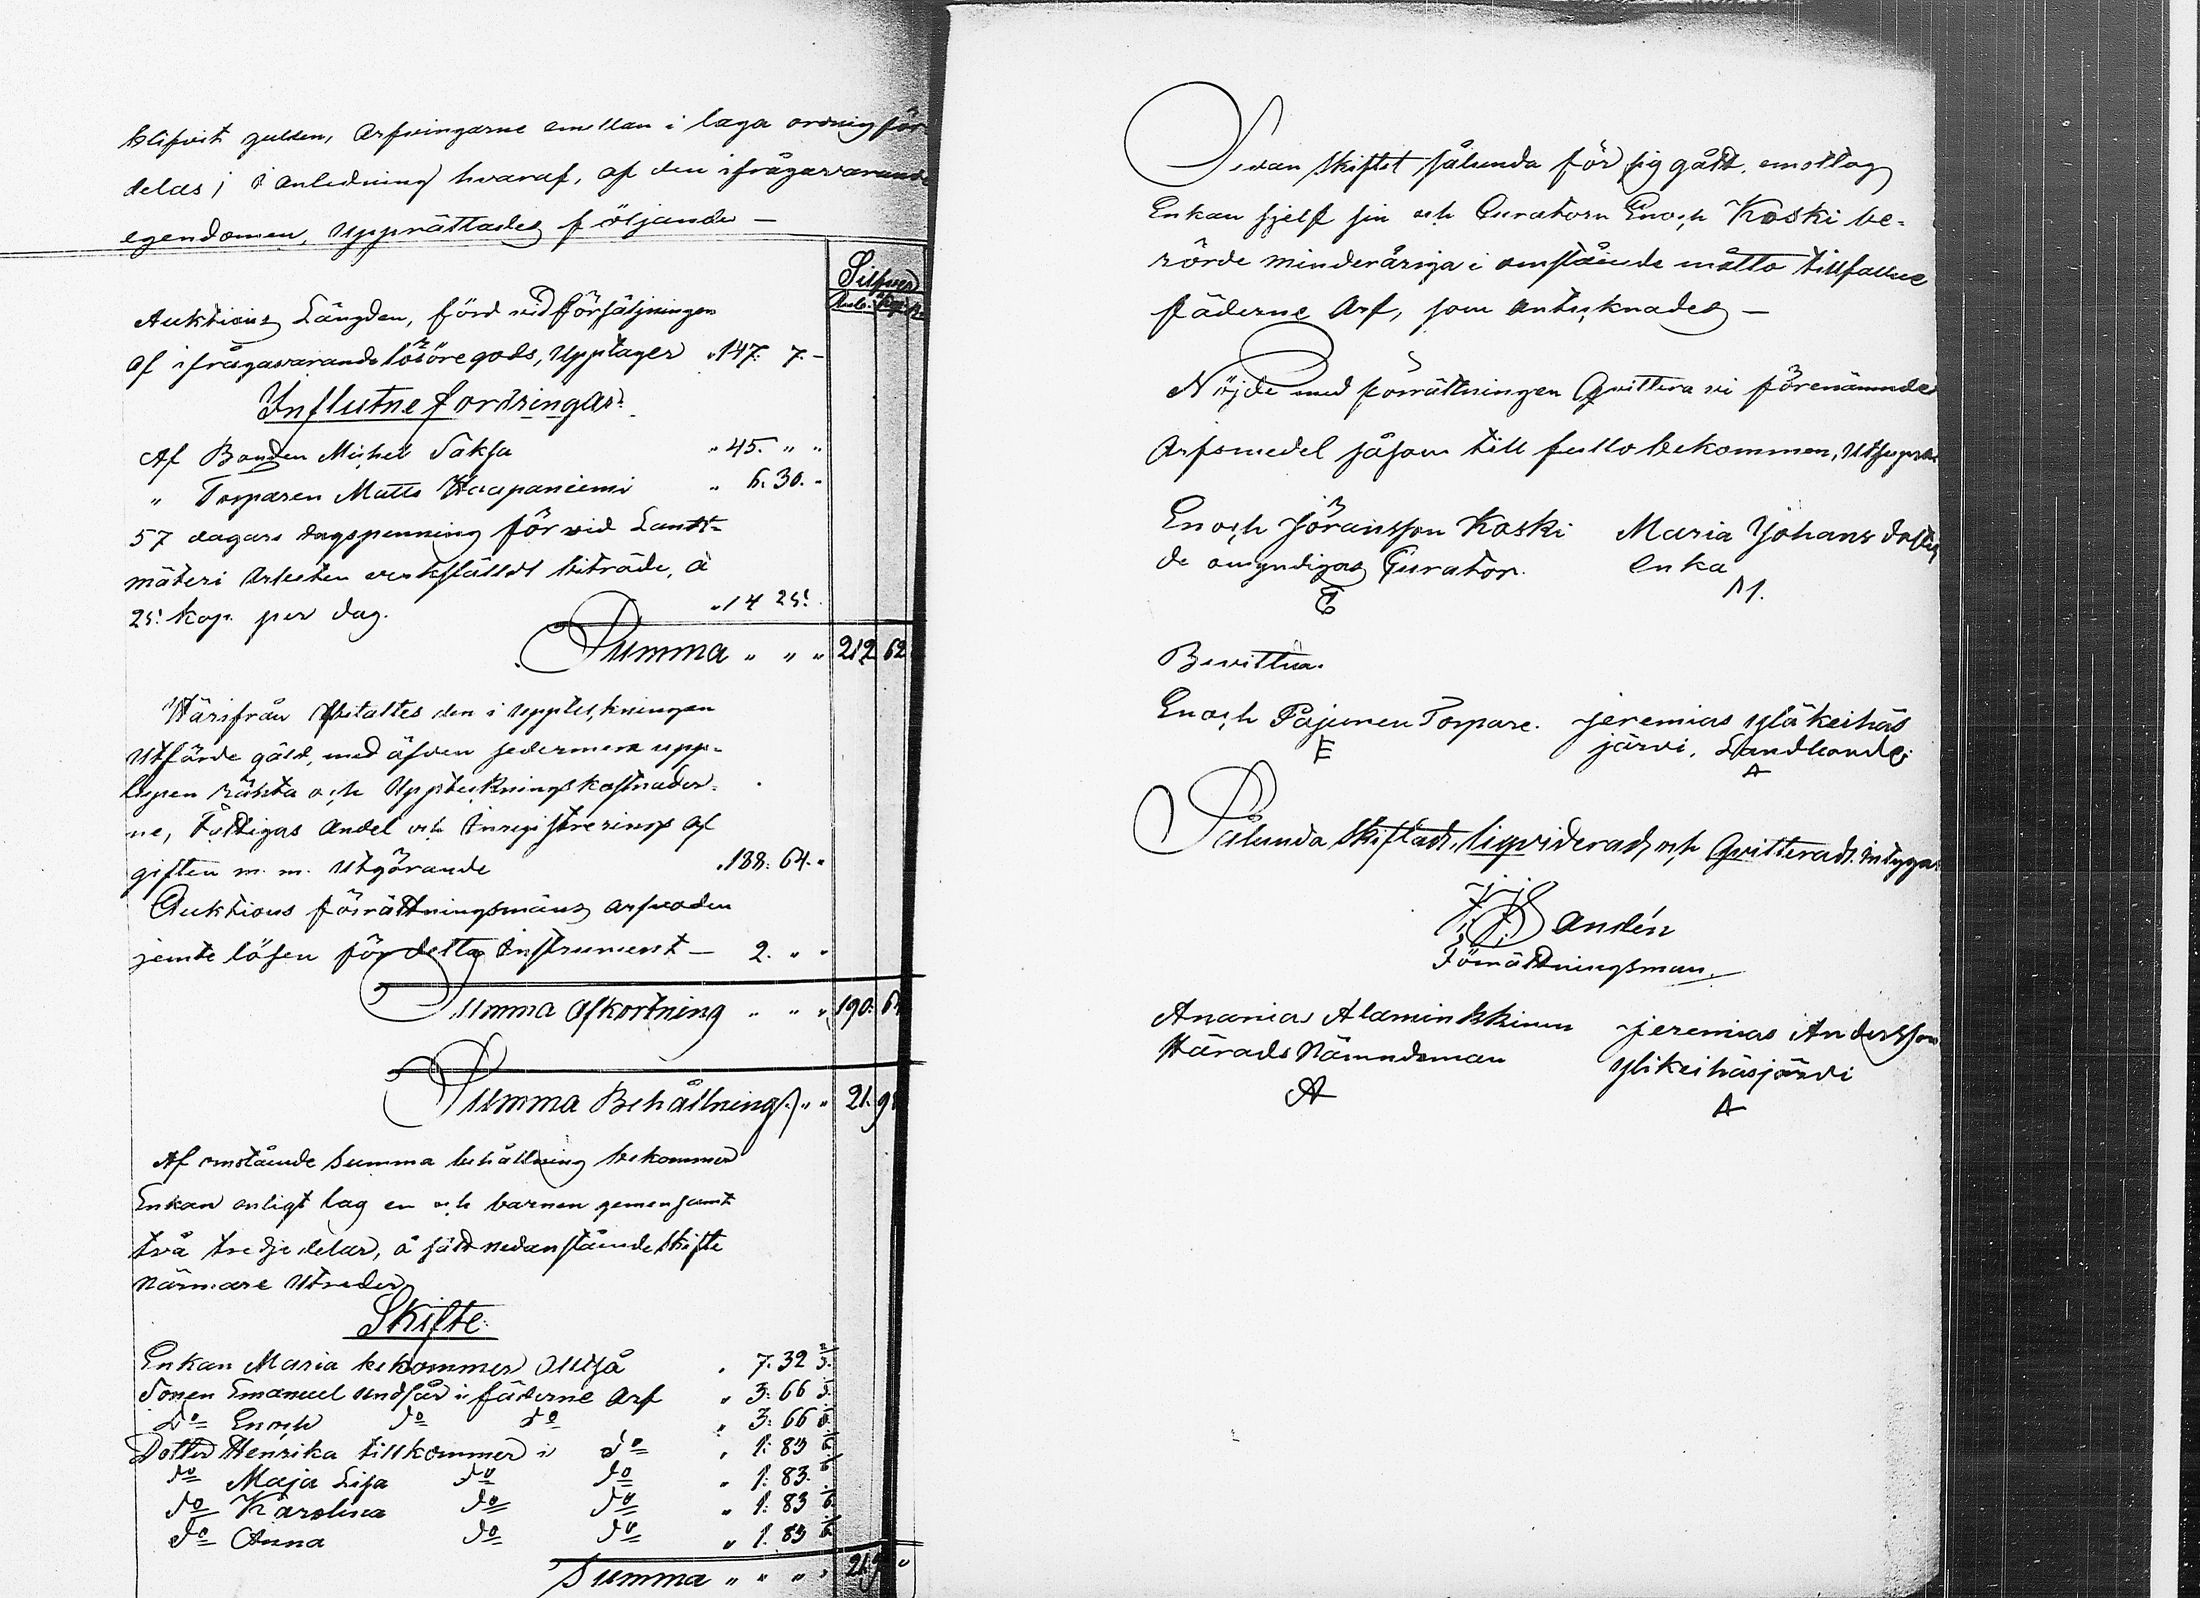 blifvit gulden, Arfvingarne emellan i laga ordning för-
delas; i anledning hvaraf, af den ifrågavarande
egendomen, upprättades följande —
Silfver
Rub. Kop.
Auktions Längden, förd vid försäljningen
af ifrågavarande lösöregods, upptager " 147. 7. –
Influtne fordringar.
Af Bonden Michel Saksa " 45. " "
" Torparen Matts Haapaniemi " 6. 30. "
57 dagars dagspenning för vid Landt-
mäteri Arbeten verkställdt biträde, à
25. kop. per dag. " 14 25.
Summa " " " 212 62
Härifrån afbetaltes den i Uppteckningen
utförde gäld, med äfven sedermera upp-
lupen ränta och Uppteckningskostnader-
ne, Fattigas Andel och Inregistrerings af
giften m. m. utgörande " 188. 64. "
Auktions förrättningsmans arfvoden
jemte lösen för detta Instrument — 2. " "
Summa Afkortning " " " 190. 64
Summa Behållning S. " " 21. 98
Af omstående Summa behållning bekommer
Enkan enligt lag en och barnen gemensamt
två tredjedelar, å sätt nedanstående skifte
närmare utreder.
Skifte.
Enkan Maria bekommer Altså " 7. 32 2/3.
Sonen Emanuel undfår i fäderne Arf " 3. 66
Do Enoch do do " 3. 66
Dotter Henrika tillkommer i do " 1. 83
do Maja Lisa do do " 1. 83.
do Karolina do do " 1. 83
do Anna do do " 1. 83
Summa " " " " 21.
Sedan skiftet sålunda för sig gått, emottog
Enkan sjelf sin och Curatorn Enoch Koski be-
rörde minderåriga i omstående måtto tillfallne
fäderne Arf, som antecknades —
Nöjde med förrättningen Qvittera vi förenämnde
Arfsmedel såsom till fullo bekommen, Utsupra
Enoch Jöransson Koski Maria Johans dotter
de omyndigas Curator. Enka
E M.
Bevittna.
Enoch Pajunen Torpare. Jeremias Yläkeihäs
E järvi, Landbonde.
A
Sålunda Skiftadt, liqviderad, och Qvitteradt, intyga.
J. J. Sandén
Förrättningsman.
Ananias Alaminkkinen Jeremias Andersson
Härads Nämndeman Ylikeihäsjärvi
A A